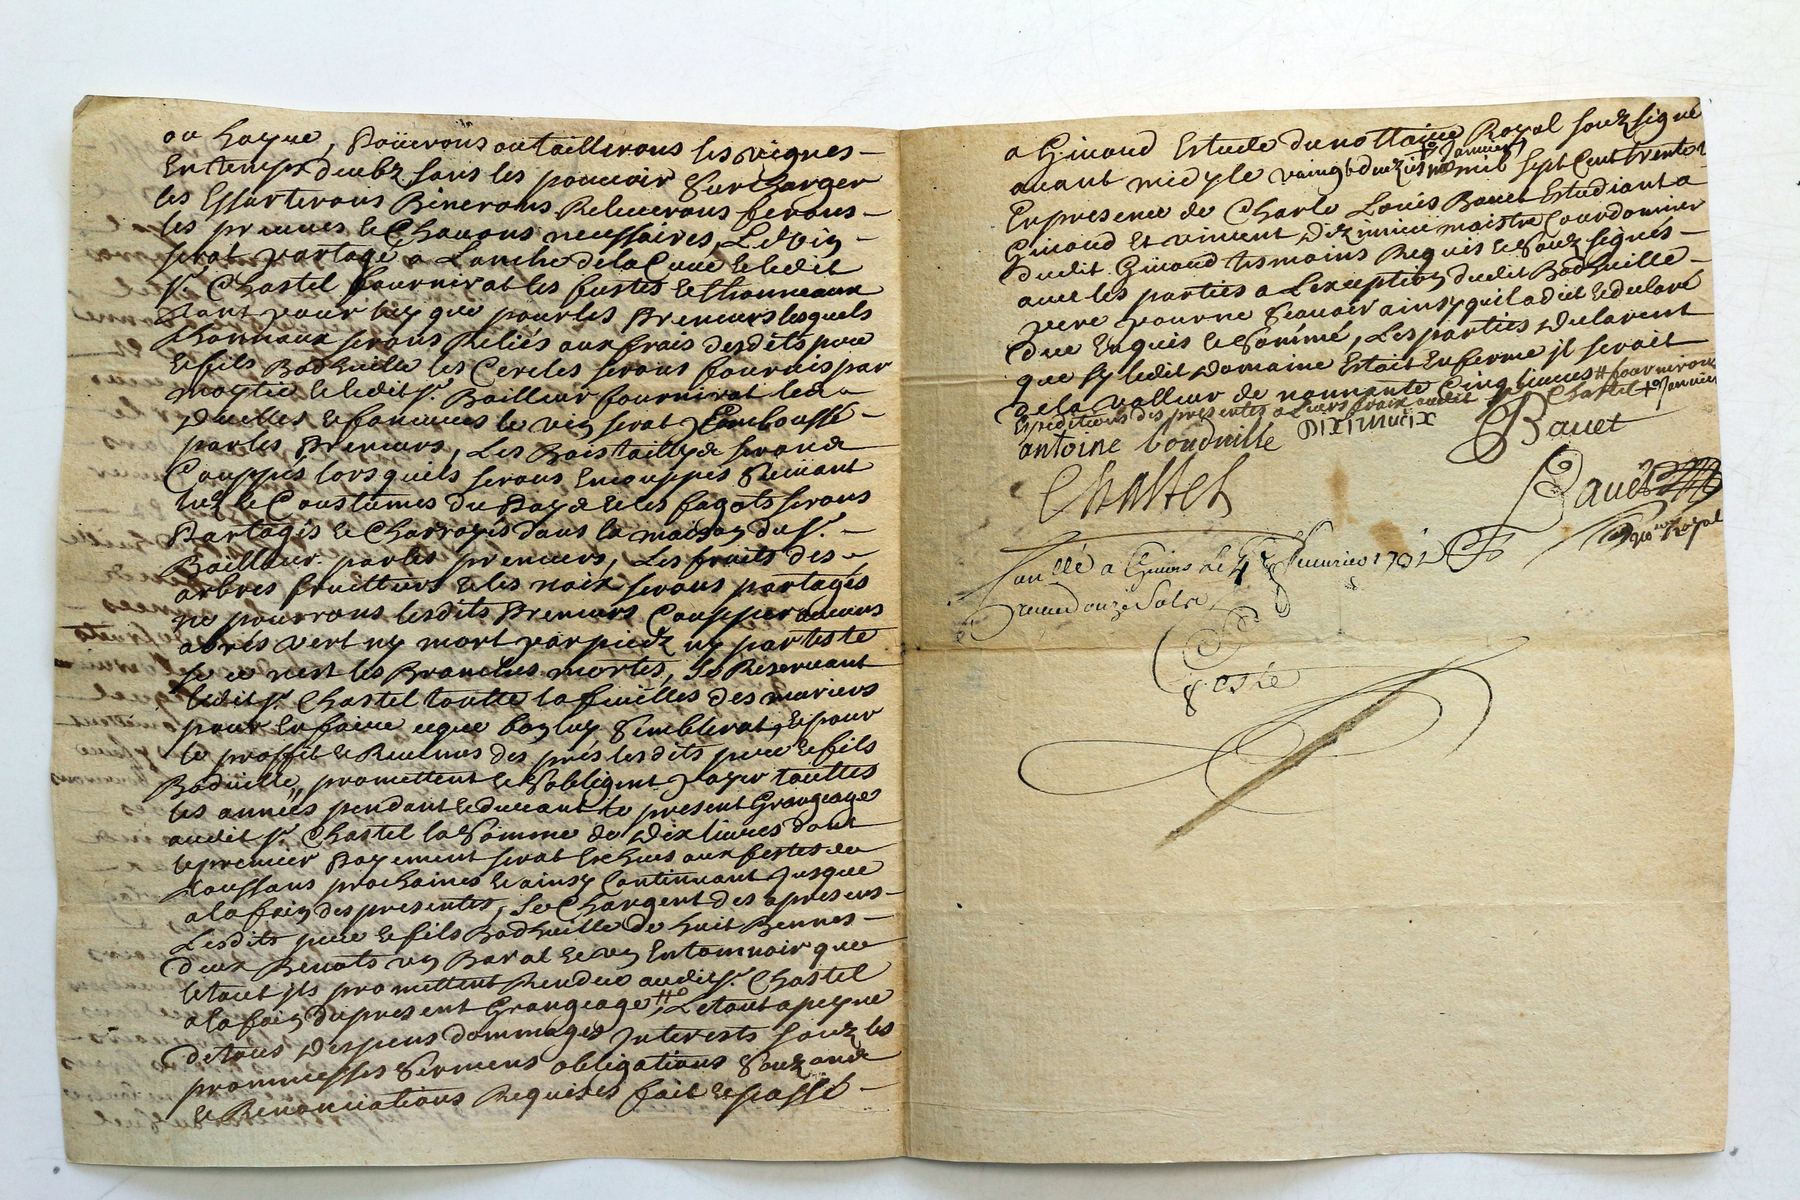 ou haque, Pouerons ou taillerons les vignes
En temps deubz sans les pouvoir Surcharger
les Essarterons Binerons Releuerons ferons
les preuues & Chauons necessaires, Le Vin
serat partagé a Lanche de la Cuue & ledit
Sr. Chastel fournirat les fustes & thonneaux
tant pour luy que pour les Preneurs lesquels
thonneaux seront Reliés aux frais desdits pere
& fils Boduille les Cercles seront fournis par
moytié & ledit Sr. Bailleur fournirat les
duelles & fonceures le vin serat Embousse
par les Preneurs, Les Bois taillys seront
Couppés lors quils seront En couppes Suiuant
les Coustumes du Pays & les fagots seront
Partagés & Charroyés dans la maison du Sr.
Bailleur par les preneurs, Les fruits des
arbres fruittiers & les noix seront partagés
ne pourront lesdits Preneurs Coupper aucuns
abres vert ny mort par piedz ny par teste
sy ce nest les Branches mortes, Se Reseruant
ledit Sr. Chastel toutte la feuilles des muriers
pour En faire ce que bon luy Semblerat, & pour
le proffit & Reuenus des prés lesdits pere & fils
Boduille, promettent & Sobligent payer touttes
les années pendant & durant le present Grangeage
audit Sr. Chastel la Somme de dix liures dont
le premier Payement serat Echeus aux festes de
toussans prochaines & ainsy Continuant jusque
a la fain des presentes, Se Chargent des apresens
Lesdits pere & fils Boduille de huit Bennes
deux Benots un Barat & un Entonnoir que
le tout jls promettent Rendre audit Sr. Chastel
a la fain du present Grangeage, Le tout a peyne
de tous despens dommages Interests souz les
prommesses Sermens obligations Souz
& Renonciations Requises fait & passé
a Giuord Estude du nottaire Royal souz signé
auant midy le vaingt deuzieme Januier mil sept Cent trente
En presence de Charle Loüis Bauet Estudiant a
Giuord Et vincent maistre Courdonnier
dudit Giuord tesmoins Requis & Souz signés
auec les parties a Lexception dudit Boduille
pere pour ne Scauoir ainsy quil a dit & declaré
due Enquis & Sommé, Les parties declarent
que sy ledit domaine Estoit En ferme jl seroit
de la valleur de nonnante Cinq liures # fourniront
Expeditions des presentes a leurs fraix audit Sr Chastel Januier
antoine bouduille Bauet
Chastel
Bauet
Nore Royal
Conllé a Giuors le feurier 1731
Receu douze Sols
Coste